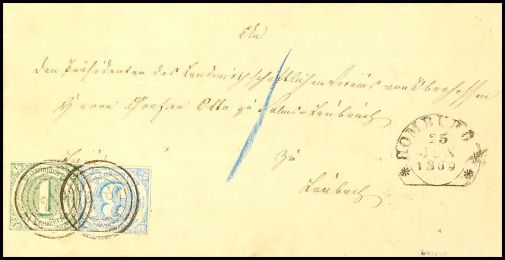 An
den Präsidenten des Landwirthschaftlichen Vereins von Oberhessen
Herrn Grafen Otto zu Solms-Laubach
zu
Laubach
HOMBURG
25
1860
1
3